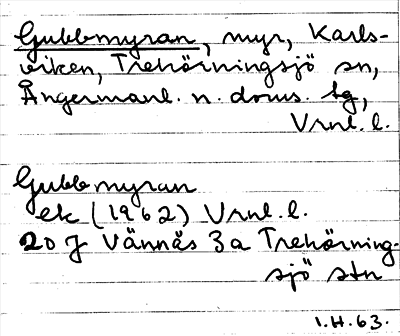 Gubbmyran, myr, Karls-
viken, Trehörningsjö sn,
Ångermanl. n. doms. tg,
Vrnl. l.
Gubbmyran
ek (1962) Vrnl. l.
20 J Vännäs 3a Trehörning-
sjö stn
1.H.63.